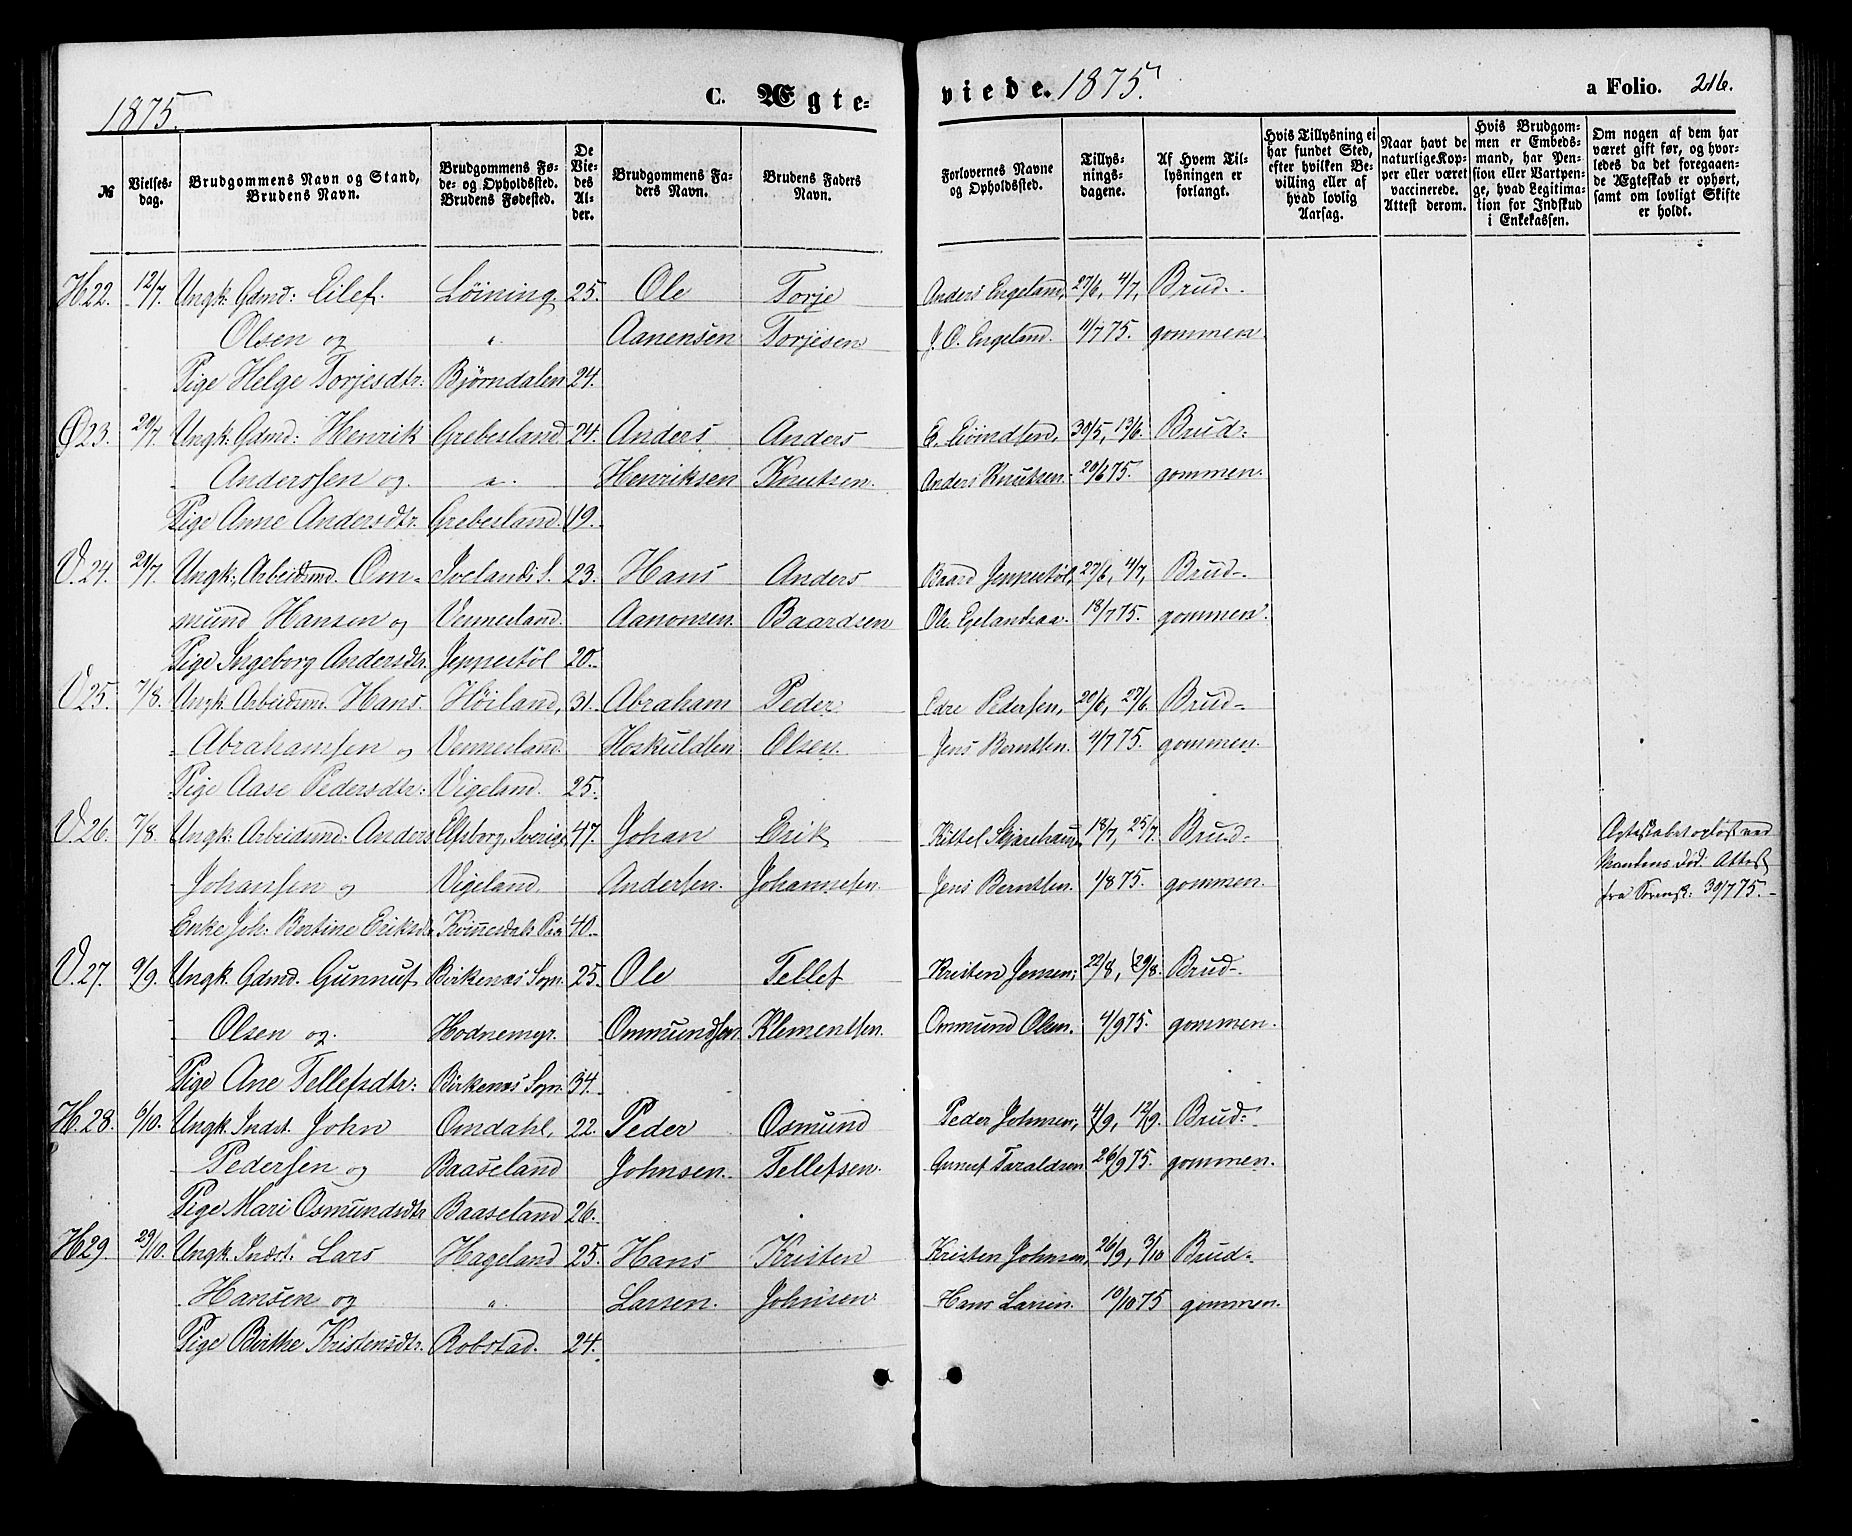 1875.
C. Ægte-
viede. 1875.
a Folio. 216.
№
Vielses-
dag.
Brudgommens Navn og Stand,
Brudens Navn.
Brudgommens Fø-
de- og Opholdssted.
Brudens Fødested.
De
Vie-
des
Al-
der.
Brudgommens Fa-
ders Navn.
Brudens Faders
Navn.
Forlovernes Navne
og Opholdssted.
Tillys-
nings-
dagene.
Af Hvem Til-
lysningen er
forlangt.
Hvis Tillysning ei
har fundet Sted,
efter hvilken Be-
villing eller af
hvad lovlig
Aarsag.
Naar havt de
naturlige Kop-
per eller været
vaccinerede.
Attest derom.
Hvis Brudgom-
men er Embeds-
mand, har Pen-
sion eller Vartpen-
ge, hvad Legitima-
tion for Indskud
i Enkekassen.
Om nogen af dem har
været gift før, og hvor-
ledes da det foregaaen-
de Ægteskab er ophørt,
samt om lovligt Skifte
er holdt.
H.22. 12/7. Ungk: Gdmd: Eilef. Löining. 25. Ole Torje Anders Engeland, 27/6, 4/7, Brud-
Olsen og " Aanensen Torjesen J. O. Engeland. 11/7 75. gommen.
Pige Helge Torjesdtr: Bjørndalen 24.
Ø 23. 20/7. Ungk: Gdmd: Henrik Grebesland 24. Anders Anders 30/5, 13/6. Brud-
Anderssen og " Henriksen Knutsen. Anders Knutsen. 20/6 75. gommen.
Pige Anne Andersdtr. Grebesland. 19.
V. 24. 20/7. Ungk: Arbeidsmd. Om- Ivelands S. 23. Hans Anders Baard Jeppestøl, 27/6, 4/7, Brud-
mund Hansen og Vennesland. Aanonsen. Baardsen Ole Egelandsaa. 18/7 75. gommen.
Pige Ingeborg Andersdtr. Jeppestöl 20.
V. 25. 7/8. Ungk. Arbeidsmd. Hans Höiland, 31. Abraham Peder Edre Pedersen, 20/6, 27/6 Brud-
Abrahamsen og Vennesland. Hoskuldsen Olsen. Jens Berntsen. 4/7 75. gommen.
Pige Aase Pedersdtr: Vigeland. 25.
V. 26. 7/8. Ungk: Arbeidsmd: Anders Elfsborg, Sverige 47. Johan Erik Kittel 18/7, 25/7. Brud- Ægteskabet opløst ved
Johansen og Vigeland. Andersen. Johannesen. Jens Berntsen. 1/8 75. gommen. Mandens Død. Attest
Enke Joh: Bertine Eriksdtr 40. fra Sorensk: 30/7 75.
V. 27. 9/9. Ungk. Gdmd. Gunnuf Birkenæs Sogn. 25. Ole Tellef Kristen Jensen; 22/8, 29/8. Brud-
Olsen og Hodnemyr. Ommundsen. Klementsen. Ommund Olsen. 4/9 75. gommen.
Pige Ane Tellefsdtr: Birkenæs Sogn. 34.
H. 28. 6/10. Ungk. Indst. John Omdahl, 22. Peder Osmund Peder Johnsen, 4/9, 12/9. Brud-
Pedersen og Baaseland Johnsen. Tellefsen. Gunuf Taraldsen. 26/9 75. gommen.
Pige Mari Osmundsdtr Baaseland 26.
H. 29. 29/10. Ungk. Indst. Lars Hageland 25. Hans Kristen Kristen Johnsen, 26/9, 3/10 Brud-
Hansen og " Larsen. Johnsen. Hans Larsen. 10/10 75 gommen.
Pige Birthe Kristensdtr. Robstad. 24.